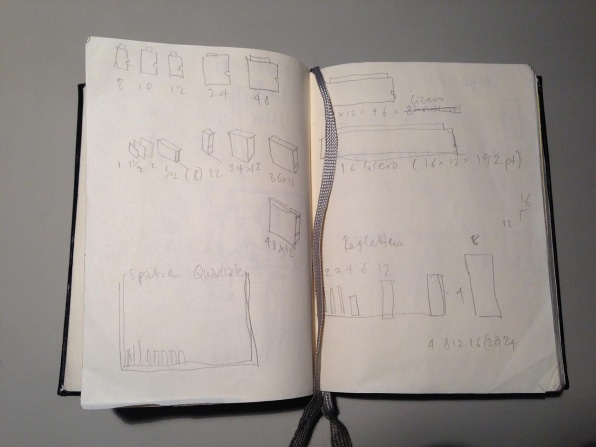 8 10 12 24 48
1 1½ 2 (8) 12 24×12 36×12
48×12
Spatien Quadraten
×12×96×
Cicero
16 Cicero (16×12×192 pt)
16
12
Regletten 8
2 2 4 6 12
4
4 8 12 16 (20, 24